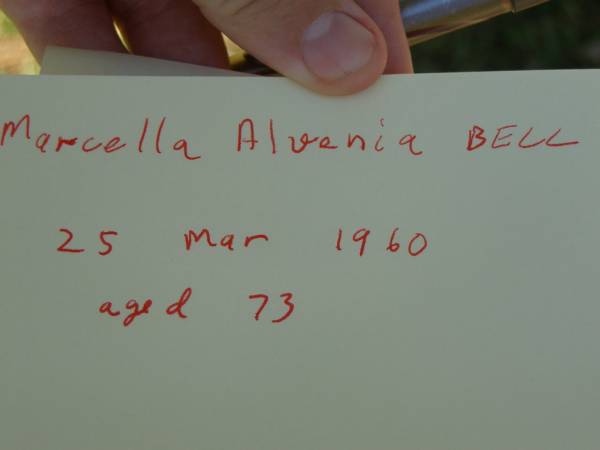 Marcella Alvenia BELL
25 Mar 1960
aged 73